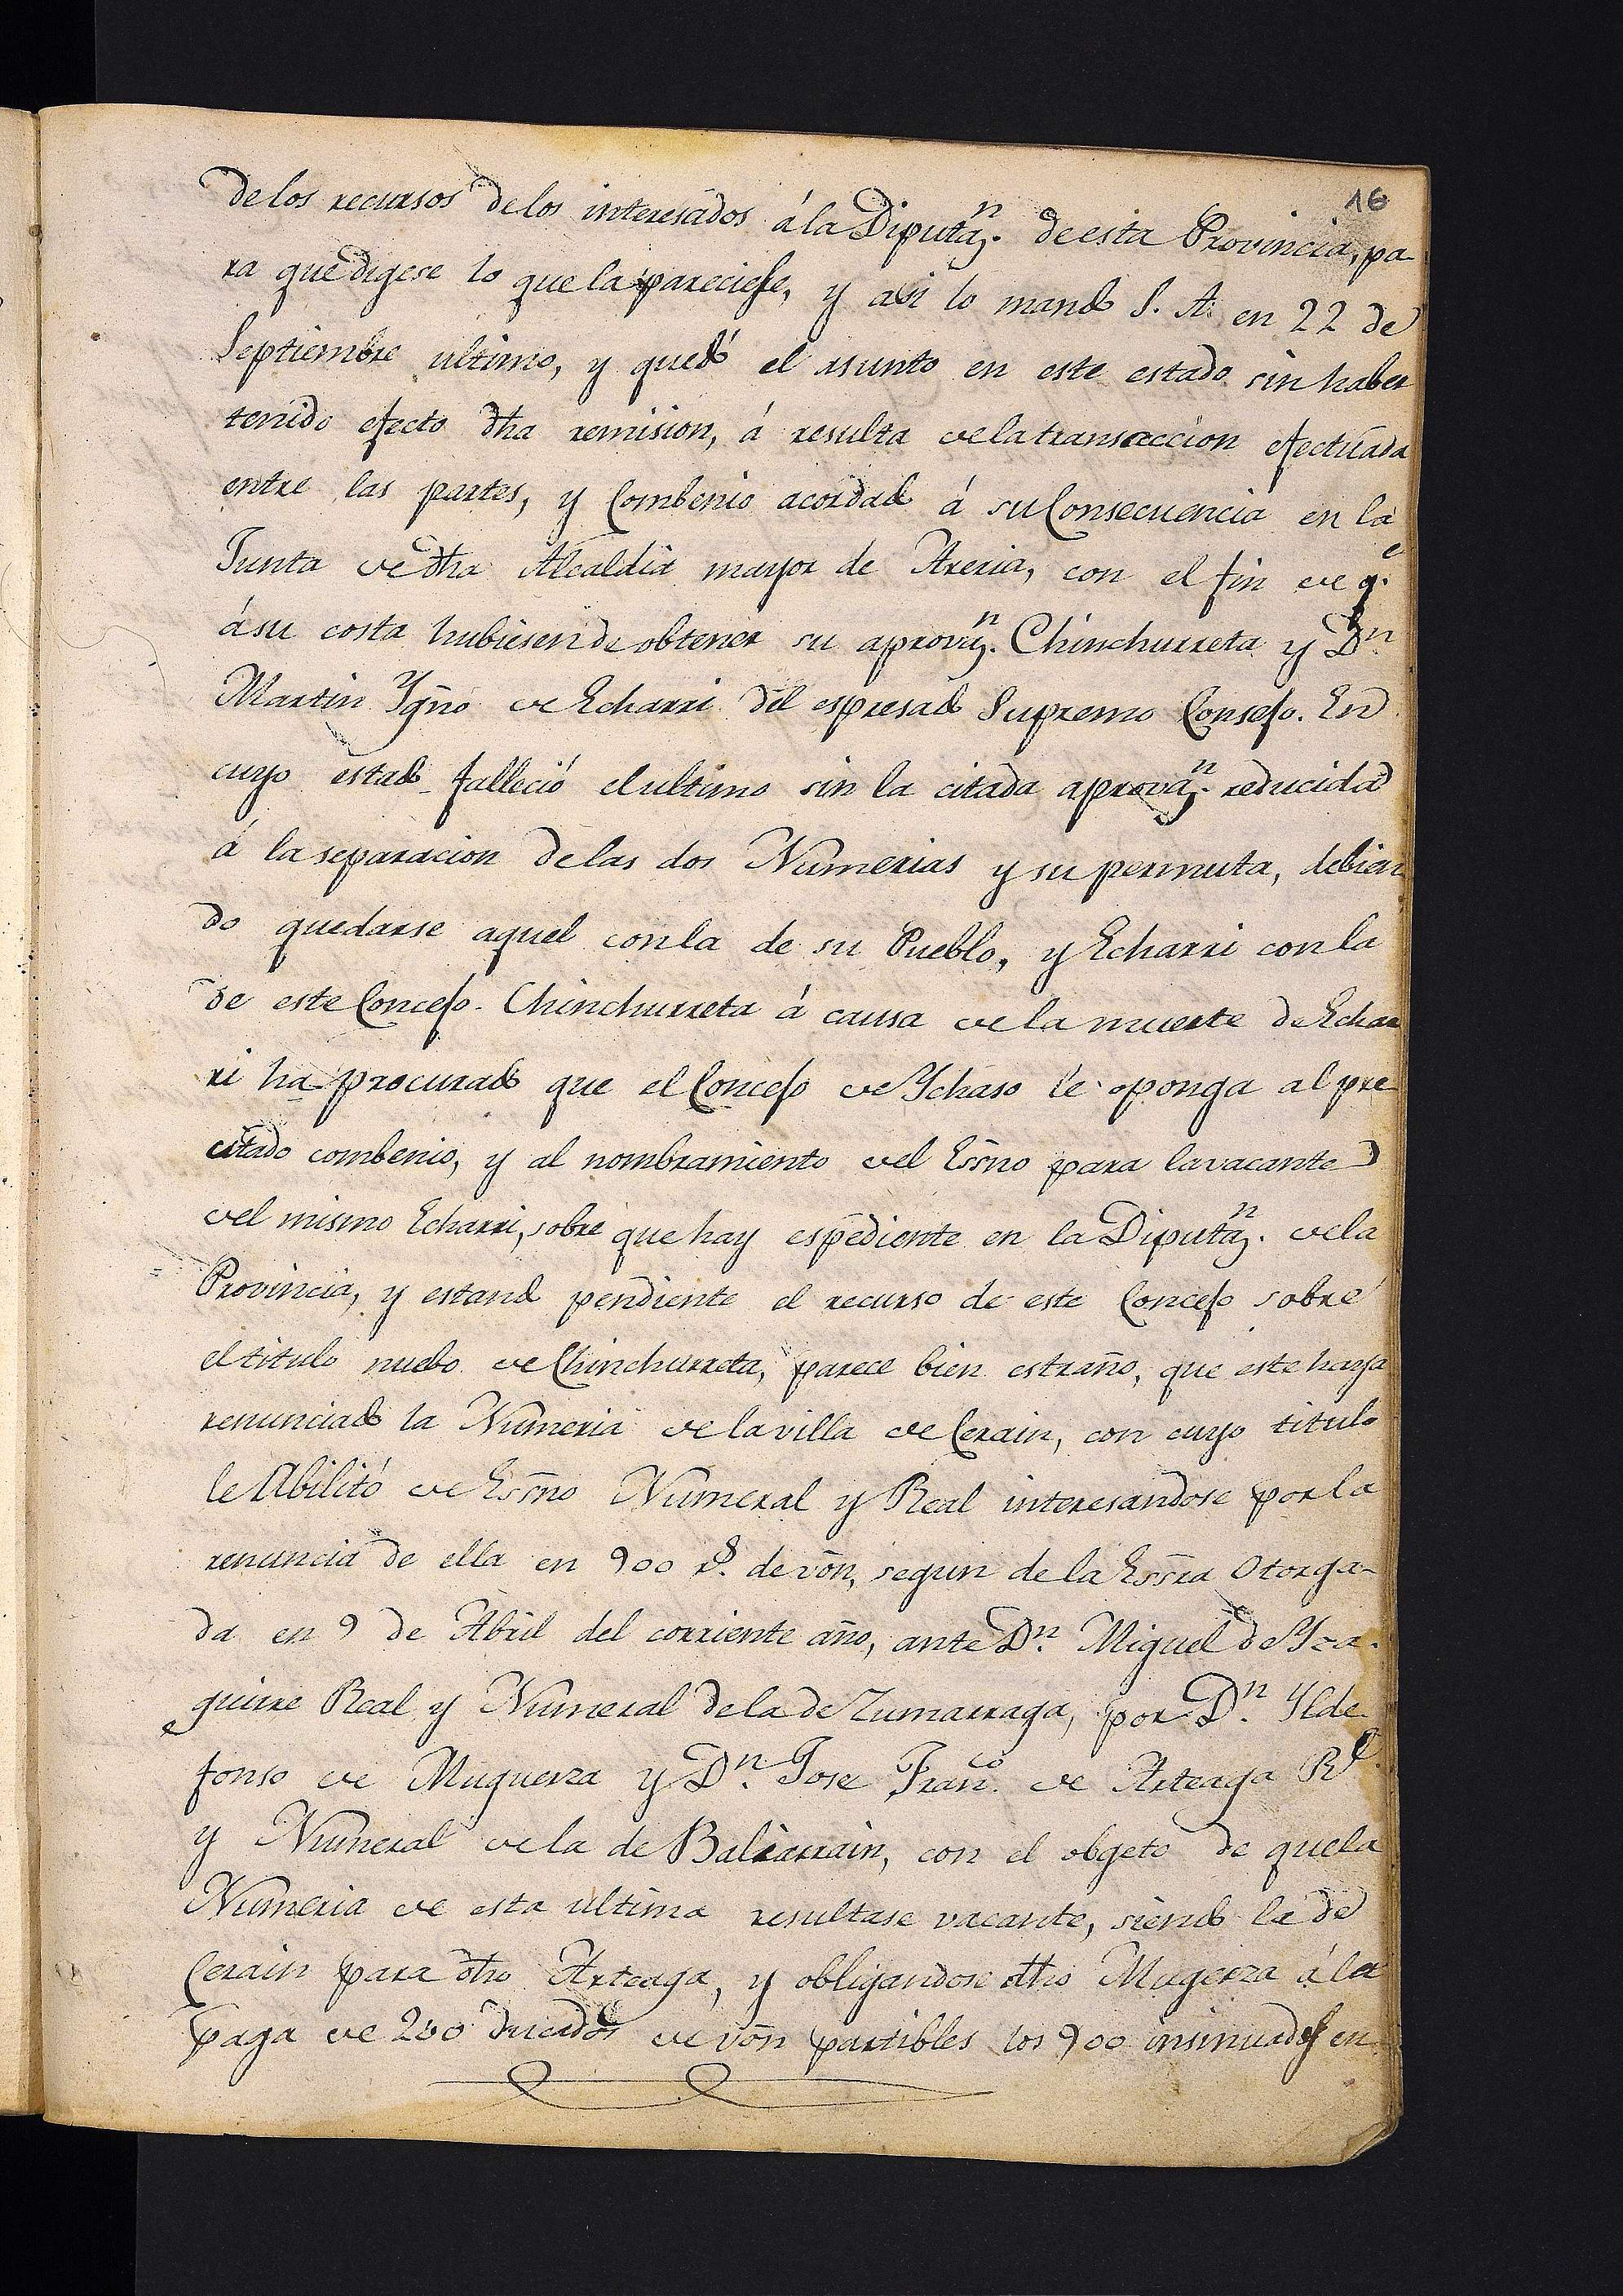 16
de los recursos de los interesados á la Diputaz.n de esta Provincia, pa-
ra que digese lo que la pareciese, y asi lo mandó S. A. en 22 de
Septiembre ultimo, y quedó el asunto en este estado sin haber
tenido efecto dha remision, á resulta de la transaccion efectuada
entre las partes, y Combenio acordado á su Consecuencia en la
Junta de dha Alcaldia mayor de Areria, con el fin de q.e
á su costa hubiesen de obtener su aprovaz.n Chinchurreta y D.n
Martin Ygño de Echarri del espresado Supremo Consejo. En
cuyo estado falleció el ultimo sin la citada aprovaz.n reducida
á la separacion de las dos Numerias y su permuta, debien
do quedarse aquel con la de su Pueblo, y Echarri con la
de este Concejo. Chinchurreta á causa de la muerte de Echar
ri ha procurado que el Concejo de Ychaso se oponga al pre
citado combenio, y al nombramiento del Essno para la vacante
del mismo Echarri, sobre que hay espediente en la Diputaz.n de la
Provincia, y estando pendiente el recurso de este Concejo sobre
el titulo nuebo de Chinchurreta, parece bien estraño, que este haya
renunciado la Numeria de la villa de Cerain, con cuyo titulo
se Abilitó de Essno Numeral y Real interesandose por la
renuncia de ella en 900 r.s de von, segun de la Essra Otorga-
da en 9 de Abril del corriente año, ante D.n Miguel de Yza-
guirre Real y Numeral de la de Zumarraga, por D.n Ylde
fonso de Muguerza y D.n Jose Fran.co de Arteaga R.l
y Numeral de la de Baliarrain, con el objeto de que la
Numeria de esta ultima resultase vacante, siendo la de
Cerain para dho Arteaga, y obligandose dho Mugerza á la
paga de 200 ducados de von partibles los 900 insinuados en